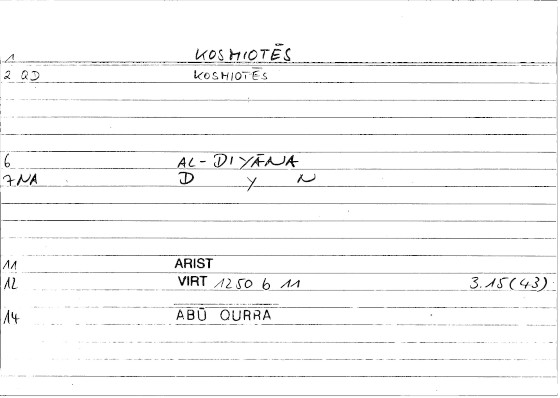 1 KOSMIOTĒS
2 QD KOSMIOTĒS
6 AL-DIYĀNA
7 NA D Y N
11 ARIST
12 VIRT 1250 b 11 3.15(43)
14 ABŪ QURRA